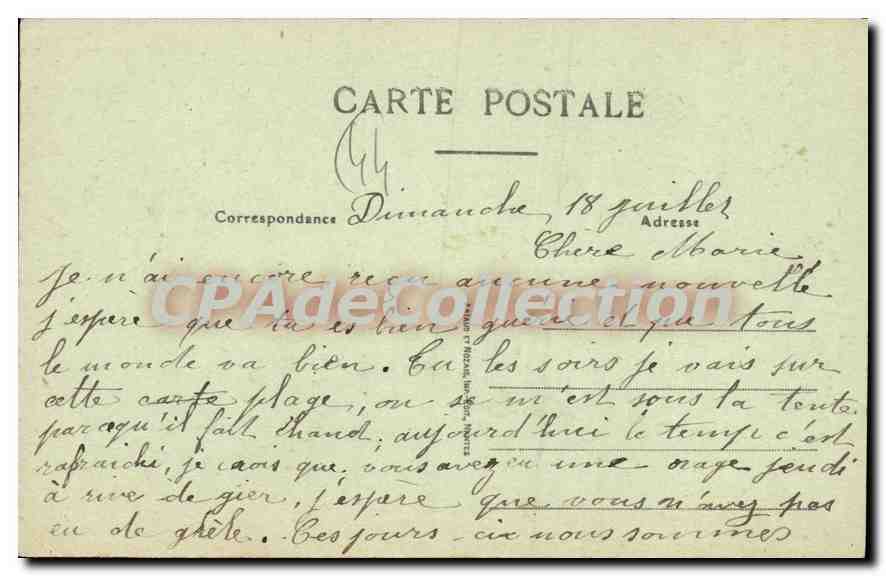 CARTE POSTALE
(44
Correspondance Dimanche, 18 Juillet
Adresse
Chère Marie
Je n'ai encore reçu aucune nouvelle
CPAdeCollection.com
j'espère que tu es bien guerie et que tous
le monde va bien. Tu les soirs je vais sur
cette carte plage, ou
m'est sous la tente
parcequ'il fait Chaud. aujourd'hui le temp c'est
rafraichi, je crois que vous avez eu une orage jeudi
à rive de gier, j'espère que vous n'avez pas
eu de grèle. Ces jours-ci nous sommes
ET NOZAIS, IMP.-EDIT., NANTES